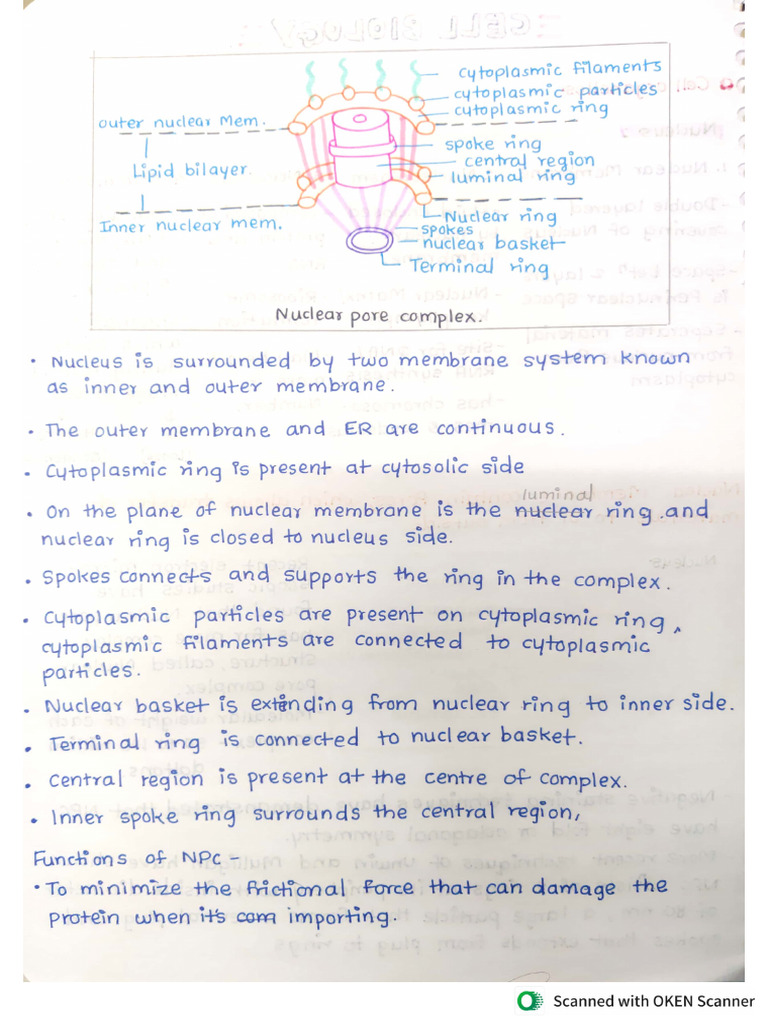 cytoplasmic filaments
cytoplasmic particles
cytoplasmic ring
outer nuclear mem.
spoke ring
central region
Lipid bilayer.
luminal ring
Nuclear ring
Inner nuclear mem.
spokes
nuclear basket
Terminal ring
Nuclear pore complex.
• Nucleus is surrounded by two membrane system known
as inner and outer membrane.
• The outer membrane and ER are continuous.
• Cytoplasmic ring is present at cytosolic side
luminal
• On the plane of nuclear membrane is the nuclear ring .and
nuclear ring is closed to nucleus side.
• Spokes connects and supports the ring in the complex.
• Cytoplasmic particles are present on cytoplasmic ring,
cytoplasmic filaments are connected to cytoplasmic
particles.
• Nuclear basket is extending from nuclear ring to inner side.
• Terminal ring is connected to nuclear basket.
• Central region is present at the centre of complex.
• Inner spoke ring surrounds the central region,
Functions of NPC -
• To minimize the frictional force that can damage the
protein when it's com importing.
Scanned with OKEN Scanner